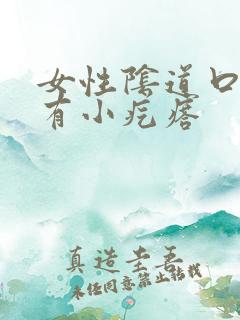 女性陰道口
有小疙瘩
真造圭吾
未经同意禁止转载